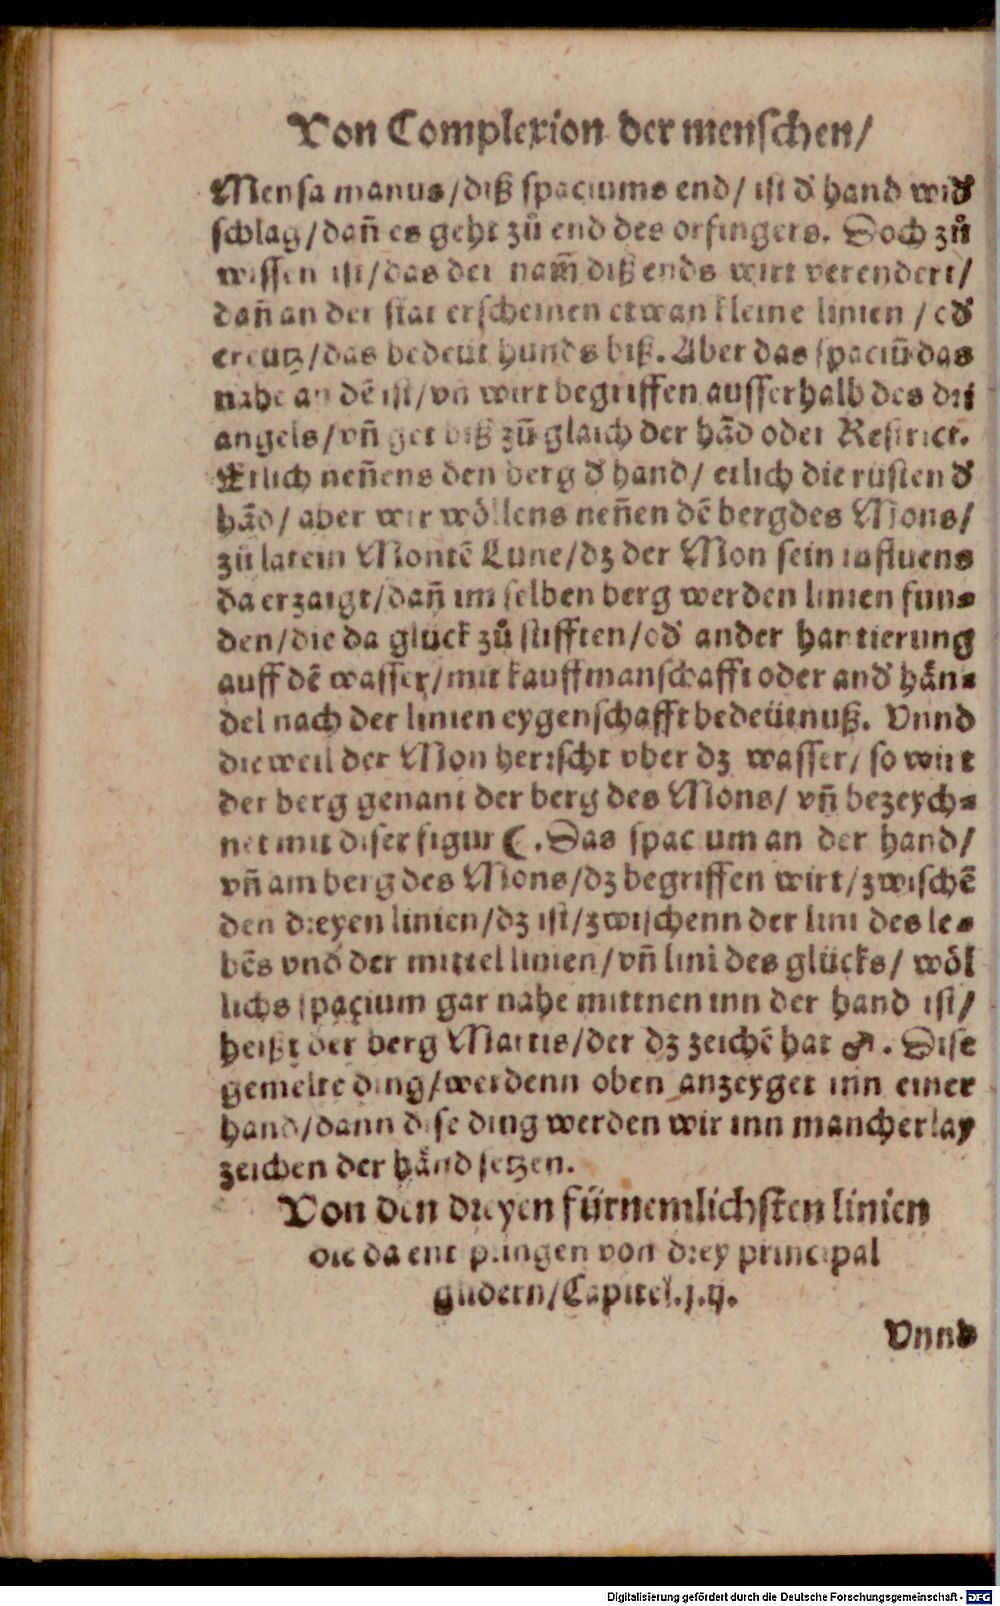 Von Complexion der menschen/
Mensa manus/diß spaciums end/ ist d' hand wid'
schlag/dañ es geht zů end des orfingers. Doch zů
wissen ist/das der nam̃ diß ends wirt verendert/
dañ an der stat erscheinen etwan kleine linien / od'
creutz/das bedeüt hunds biß. Aber das spaciũ das
nahe an dẽ ist/vñ wirt begriffen ausserhalb des dri
angels/vñ get biß zũ glaich der hãd oder Restrict.
Etlich neñens den berg d' hand/ etlich die rüsten d'
hãd/ aber wir wöllens neñen dẽ berg des Mons/
zů latein Montẽ Lune/dz der Mon sein influens
da erzaigt/dañ im selben berg werden linien fun⸗
den/die da glück zů stifften/od' ander hantierung
auff dẽ wasser/mit kauffmanschafft oder and' hän⸗
del nach der linien eygenschafft bedeütnuß. Vnnd
die weil der Mon herrscht vber dz wasser/ so wirt
der berg genant der berg des Mons/ vñ bezeych⸗
net mit diser figur ☾. Das spacium an der hand/
vñ am berg des Mons/dz begriffen wirt/zwischẽ
den dreyen linien/dz ist/zwischenn der lini des le⸗
bẽs vnd der mittel linien/vñ lini des glücks/ wöl
lichs spacium gar nahe mittnen inn der hand ist/
heißt der berg Martis/der dz zeichẽ hat ♂. Dise
gemelte ding/werdenn oben anzeyget inn einer
hand/dann dise ding werden wir inn mancherlay
zeichen der händ setzen.
Von den dreyen fürnemlichsten linien
die da entspringen von drey principal
glidern/Capitel.j.ij.
Vnnd
Digitalisierung gefördert durch die Deutsche Forschungsgemeinschaft - DFG